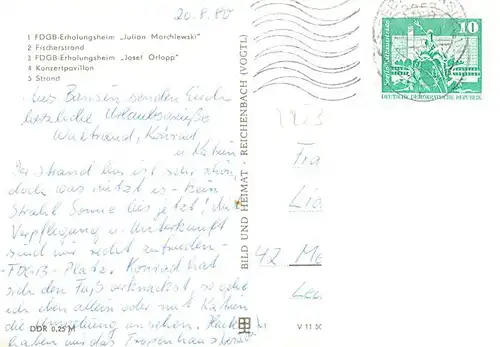 20.8.80
1 FDGB-Erholungsheim „Julian Marchlewski"
2 Fischerstrand
3 FDGB-Erholungsheim „Josef Orlopp"
4 Konzertpavillon
5 Strand
Aus Bansin senden Euch
herzliche Urlaubsgrüße
Waltraud, Konrad
u. Katrin
Der Strand hier ist sehr schön,
doch was nützt es – kein
Strahl Sonne bis jetzt! Mit
Verpflegung u. Unterkunft
sind wir recht zufrieden –
FDGB-Platz. Konrad hat
sich den Fuß verknackst, so gehe
ich eben allein oder mit Katrin
die Umgebung ansehen.
haben wir das Tropenhaus
DDR 0,25 M
BILD UND HEIMAT REICHENBACH (VOGTL)
V 11 50
10
DEUTSCHE DEMOKRATISCHE REPUBLIK
Fra
42 Me